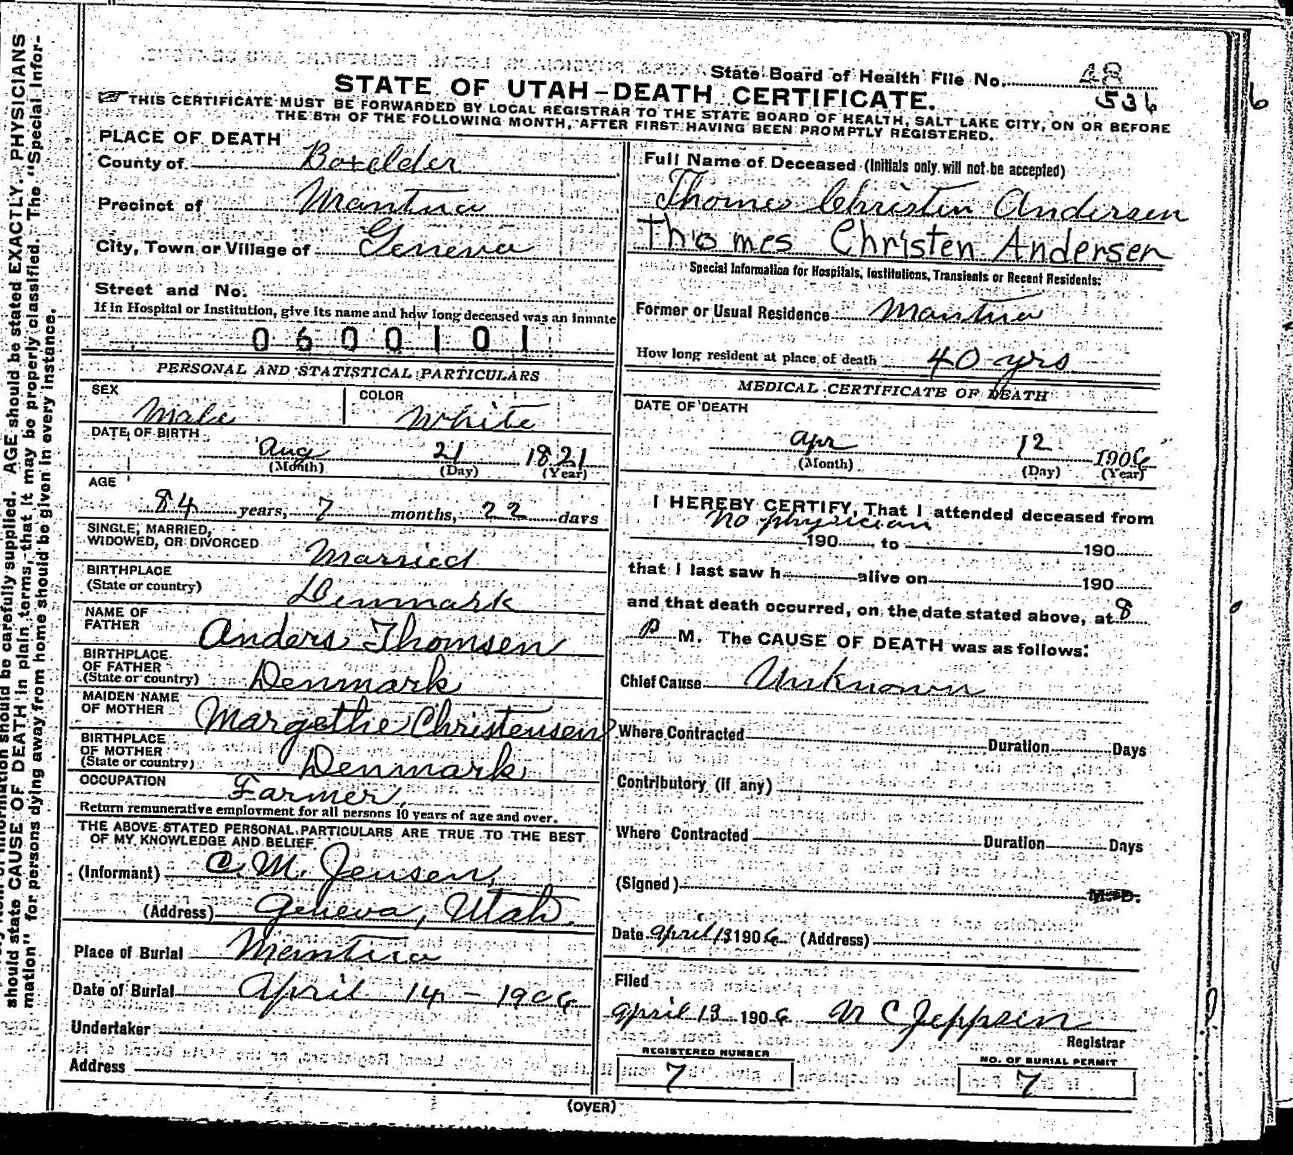 should state CAUSE OF DEATH in plain terms, that it may be properly classified. The "Special Infor-
mation" for persons dying away from home should be given in every instance.
should be carefully supplied. AGE should be stated EXACTLY. PHYSICIANS
State Board of Health File No. 48
536
6
STATE OF UTAH-DEATH CERTIFICATE.
THIS CERTIFICATE MUST BE FORWARDED BY LOCAL REGISTRAR TO THE STATE BOARD OF HEALTH, SALT LAKE CITY, ON OR BEFORE
THE 5TH OF THE FOLLOWING MONTH, AFTER FIRST HAVING BEEN PROMPTLY REGISTERED.
PLACE OF DEATH
County of Boxelder
Precinct of Mantua
City, Town or Village of Geneva
Street and No.
If in Hospital or Institution, give its name and how long deceased was an inmate
0600101
PERSONAL AND STATISTICAL PARTICULARS
SEX Male COLOR White
DATE OF BIRTH
Aug 21 1821
(Month) (Day) (Year)
AGE
84 years, 7 months, 22 days
SINGLE, MARRIED,
WIDOWED, OR DIVORCED Married
BIRTHPLACE
(State or country) Denmark
NAME OF
FATHER Anders Thomsen
BIRTHPLACE
OF FATHER
(State or country) Denmark
MAIDEN NAME
OF MOTHER Margethe Christensen
BIRTHPLACE
OF MOTHER
(State or country) Denmark
OCCUPATION Farmer
Return remunerative employment for all persons 10 years of age and over.
THE ABOVE STATED PERSONAL PARTICULARS ARE TRUE TO THE BEST
OF MY KNOWLEDGE AND BELIEF
(Informant) C. M. Jensen,
(Address) Geneva, Utah.
Place of Burial Mantua
Date of Burial April 14 - 1906
Undertaker
Address
Full Name of Deceased (Initials only will not be accepted)
Thomes Christen Andersen
Thomes Christen Andersen
Special Information for Hospitals, Institutions, Transients or Recent Residents:
Former or Usual Residence Mantua
How long resident at place of death 40 yrs
MEDICAL CERTIFICATE OF DEATH
DATE OF DEATH
Apr 12 1906
(Month) (Day) (Year)
I HEREBY CERTIFY, That I attended deceased from
No physician
190 to 190
that I last saw h alive on 190
and that death occurred, on the date stated above, at 8
P M. The CAUSE OF DEATH was as follows:
Chief Cause Unknown
Where Contracted Duration Days
Contributory (if any)
Where Contracted Duration Days
(Signed) M. D.
Date April 13 1906 (Address)
Filed
April 13 1906 N C Jeppsen
Registrar
REGISTERED NUMBER
7
NO. OF BURIAL PERMIT
7
(OVER)